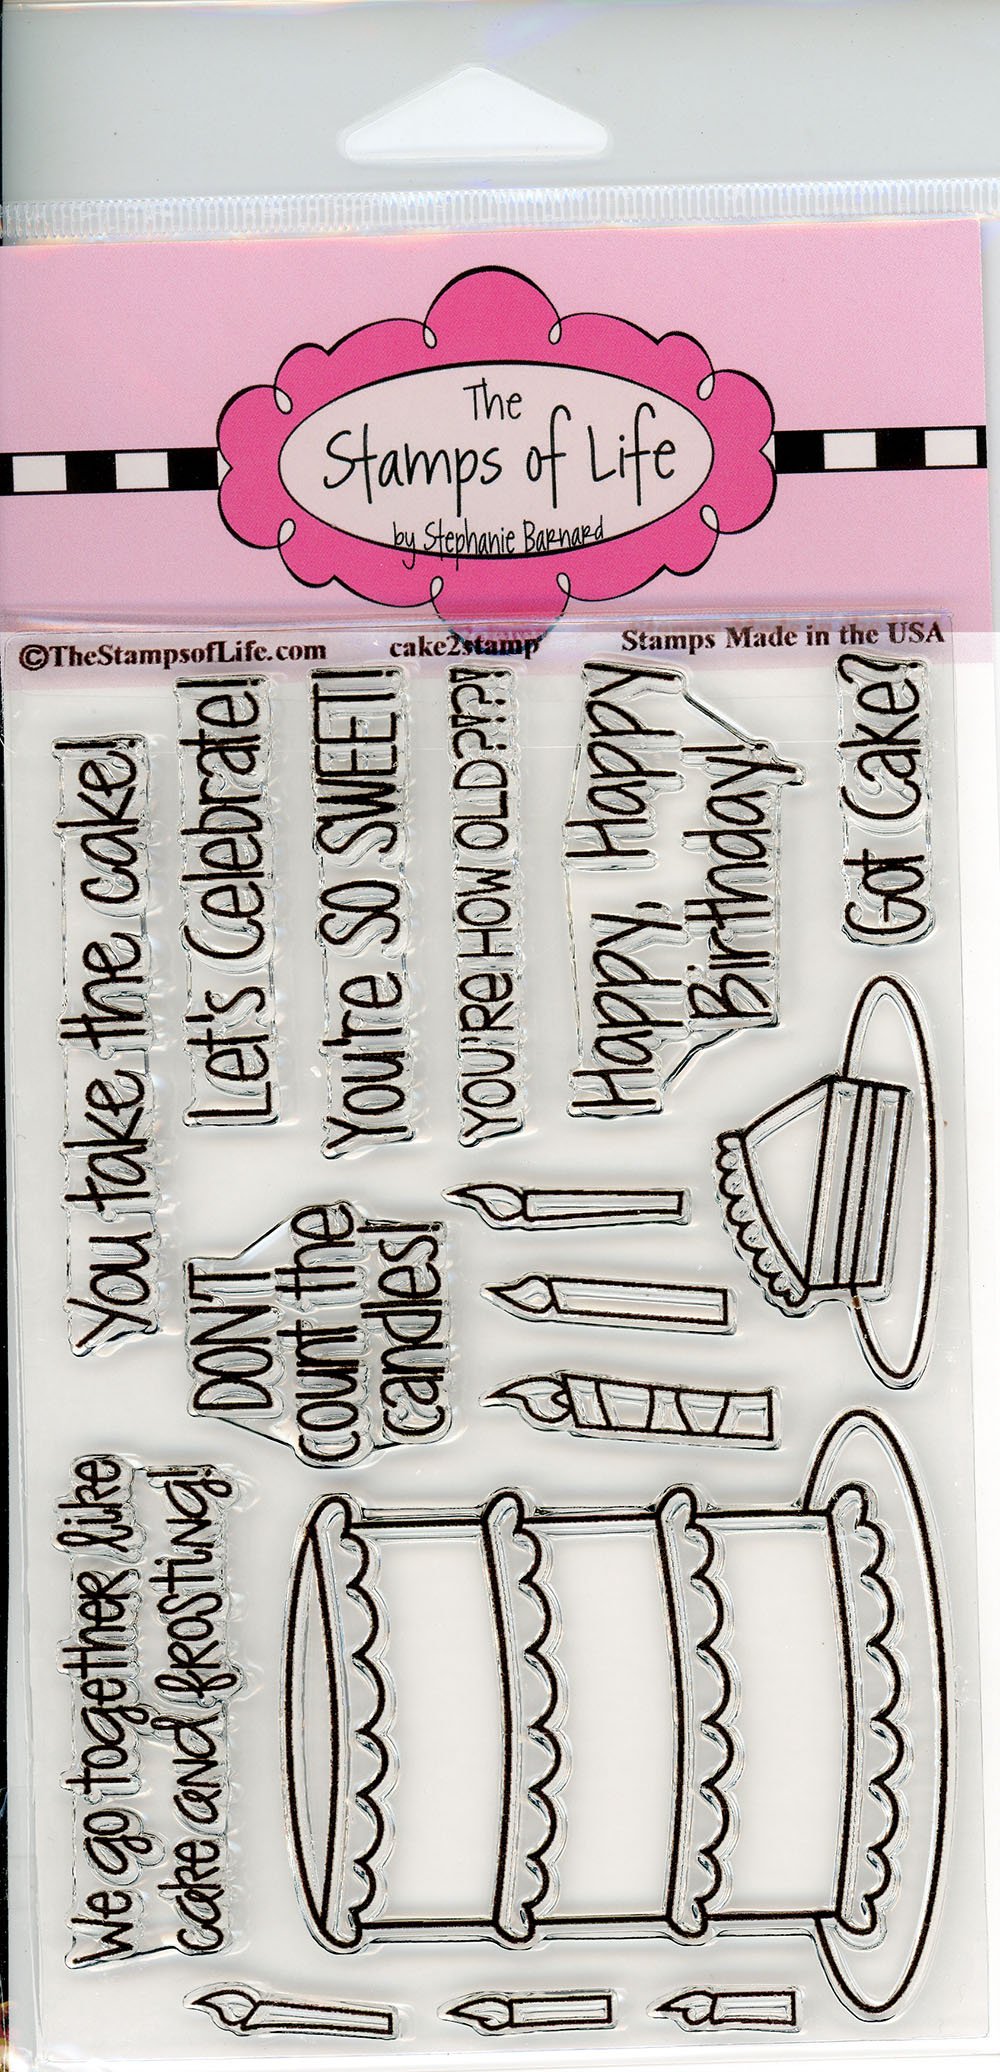 The
Stamps of Life
by Stephanie Barnard
©TheStampsofLife.com
cake2stamp
Stamps Made in the USA
You take the cake!
Let's Celebrate!
You're SO SWEET!
YOU'RE HOW OLD?!?!
Happy, Happy
Birthday!
Got Cake?
DON'T
count the
candles!
We go together like
cake and frosting!